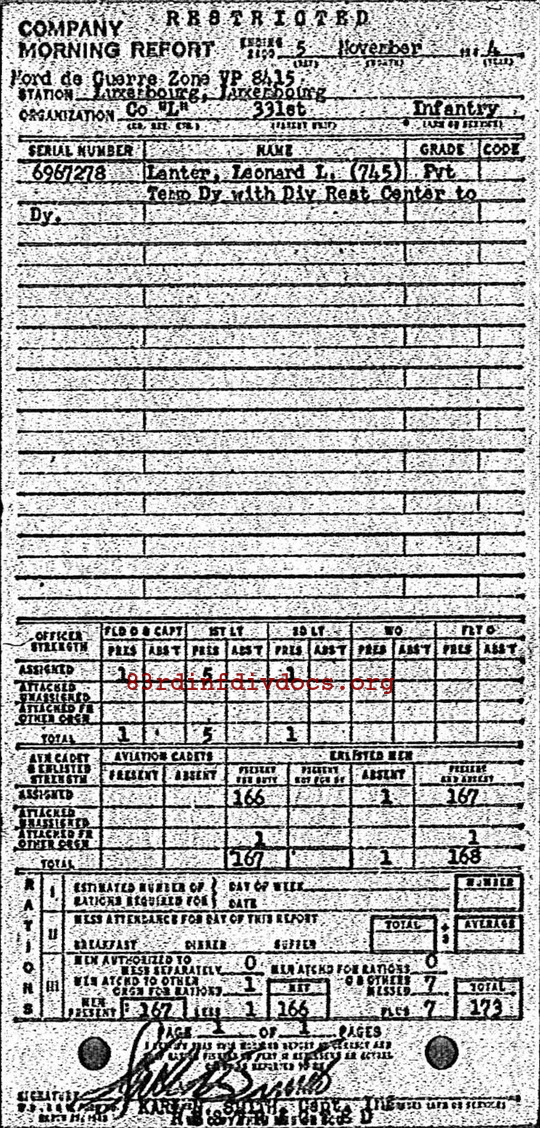 RESTRICTED
COMPANY
MORNING REPORT ENDING 2400 5 November 194 4
(DAY) (MONTH) (YEAR)
Nord de Guerre Zone VP 8415
STATION Luxembourg, Luxembourg
ORGANIZATION Co "L" 331st Infantry
(PARENT UNIT) (ARM OR SERVICE)
SERIAL NUMBER NAME GRADE CODE
6967278 Lanter, Leonard L. (745) Pvt
Temp Dy with Div Rest Center to
Dy.
OFFICER STRENGTH FLD O & CAPT 1ST LT 2D LT WO FLT O
PRES ABS'T PRES ABS'T PRES ABS'T PRES ABS'T PRES ABS'T
ASSIGNED 1 5 1
83rdinfdivdocs.org
ATTACHED UNASSIGNED
ATTACHED FR OTHER ORGN
TOTAL 1 5 1
AVN CADET & ENLISTED STRENGTH AVIATION CADETS ENLISTED MEN
PRESENT ABSENT PRESENT FOR DUTY PRESENT NOT FOR DY ABSENT PRESENT AND ABSENT
ASSIGNED 166 1 167
ATTACHED UNASSIGNED
ATTACHED FR OTHER ORGN 1 1
TOTAL 167 1 168
RATIONS
I ESTIMATED NUMBER OF RATIONS REQUIRED FOR DAY OF WEEK DATE NUMBER
II MESS ATTENDANCE FOR DAY OF THIS REPORT TOTAL ÷ 3 AVERAGE
BREAKFAST DINNER SUPPER
III MEN AUTHORIZED TO MESS SEPARATELY 0 MEN ATCHD FOR RATIONS 0
MEN ATCHD TO OTHER ORGN FOR RATIONS 1 NET OTHERS MESSED 7 TOTAL
MEN PRESENT 167 LESS 1 166 PLUS 7 173
PAGE 1 OF 1 PAGES
SIGNATURE
SMITH, Capt, Inf